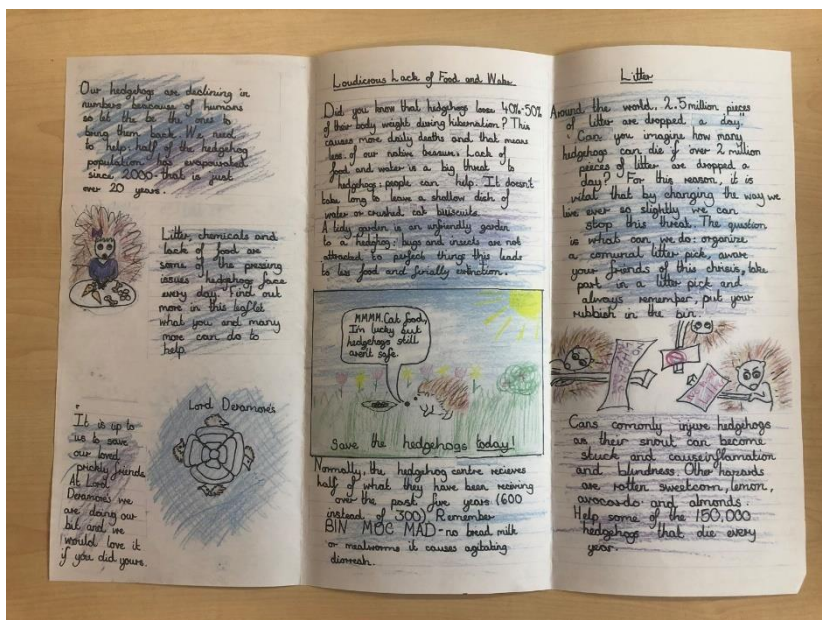 Our hedgehogs are declining in
numbers beacause of humans
so let the be the ones to
bring them back. We need
to help: half of the hedgehog
population has evapourated
since 2000-that is just
over 20 years.
Litter, chemicals and
lack of food are
some of the pressing
issues hedgehog face
every day. Find out
more in this leaflet
what you and many
more can do to
help.
It is up to
us to save
our loved
prickly friends
At Lord
Deramores we
are doing our
bit and we
would love it
if you did yours.
Lord Deramores
Loudicrous Lack of Food and Water
Did you know that hedgehogs loose 40%-50%
of their body weight during hibernation? This
causes more daily deaths and that means
less of our native beasurs. Lack of
food and water is a big threat to
hedgehogs: people can help. It doesn't
take long to leave a shallow dish of
water or crushed cat buiscuits.
A tidy garden is an unfriendly garden
to a hedgehog: bugs and insects are not
attracted to perfect thing this leads
to less food and finially extinction.
MMMM. Cat food,
I'm lucky but
hedgehogs still
arent safe.
Save the hedgehogs today!
Normally, the hedgehog centre recieves
half of what they have been reciving
over the past five years (600
instead of 300) Remember
BIN MOC MAD-no bread milk
or mealworms it causes agitating
diorreah.
Litter
Around the world, 2.5 million pieces
of litter are dropped a day."
Can you imagine how many
hedgehogs can die if over 2 million
peices of litter are dropped a
day? For this reason, it is
vital that by changing the way we
live ever so slightly we can
stop this threat. The question
is what can we do: organize
a comunal litter pick, aware
your friends of this chrisis, take
part in a litter pick and
always remember, put your
rubbish in the bin.
Cans commonly injure hedgehogs
as their snout can become
stuck and cause inflamation
and blindness. Other hazards
are rotten sweetcorn, lemon,
avocardo and almonds.
Help some of the 150,000
hedgehogs that die every
year.